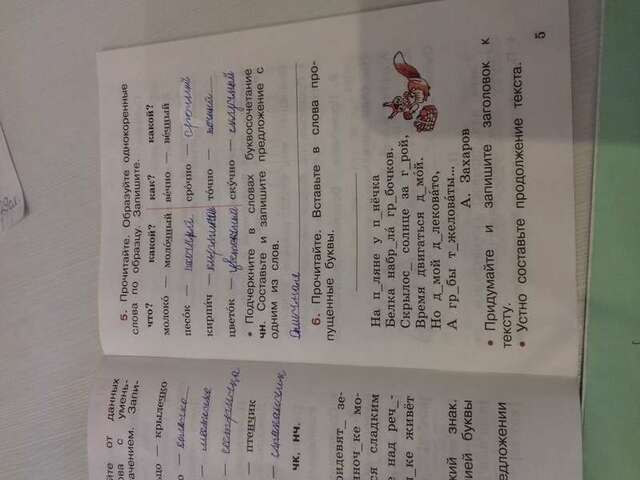 5. Прочитайте. Образуйте однокоренные
слова по образцу. Запишите.
что? какой? как? какой?
молоко́ — моло́чный ве́чно — ве́чный
песо́к — сро́чно — срочный
кирпи́ч — то́чно — точный
цвето́к — ску́чно — скучный
• Подчеркните в словах буквосочетание
чн. Составьте и запишите предложение с
одним из слов.
6. Прочитайте. Вставьте в слова про-
пущенные буквы.
На п_ляне у п_нёчка
Белка набр_ла́ гр_бочков.
Скрылос_ солнце за г_рой,
Время двигаться д_мо́й.
Но д_мой д_лековато,
А гр_бы т_желоваты...
А. Захаров
• Придумайте и запишите заголовок к
тексту.
• Устно составьте продолжение текста.
5
йте от данных
ова с умень-
начением. Запи-
цо — крылечко
— птенчик
чк, нч.
ридевят_ зе-
нноч_ке мо-
ся сладким
е над реч_-
и_ке живёт
кий знак.
ией буквы
едложении